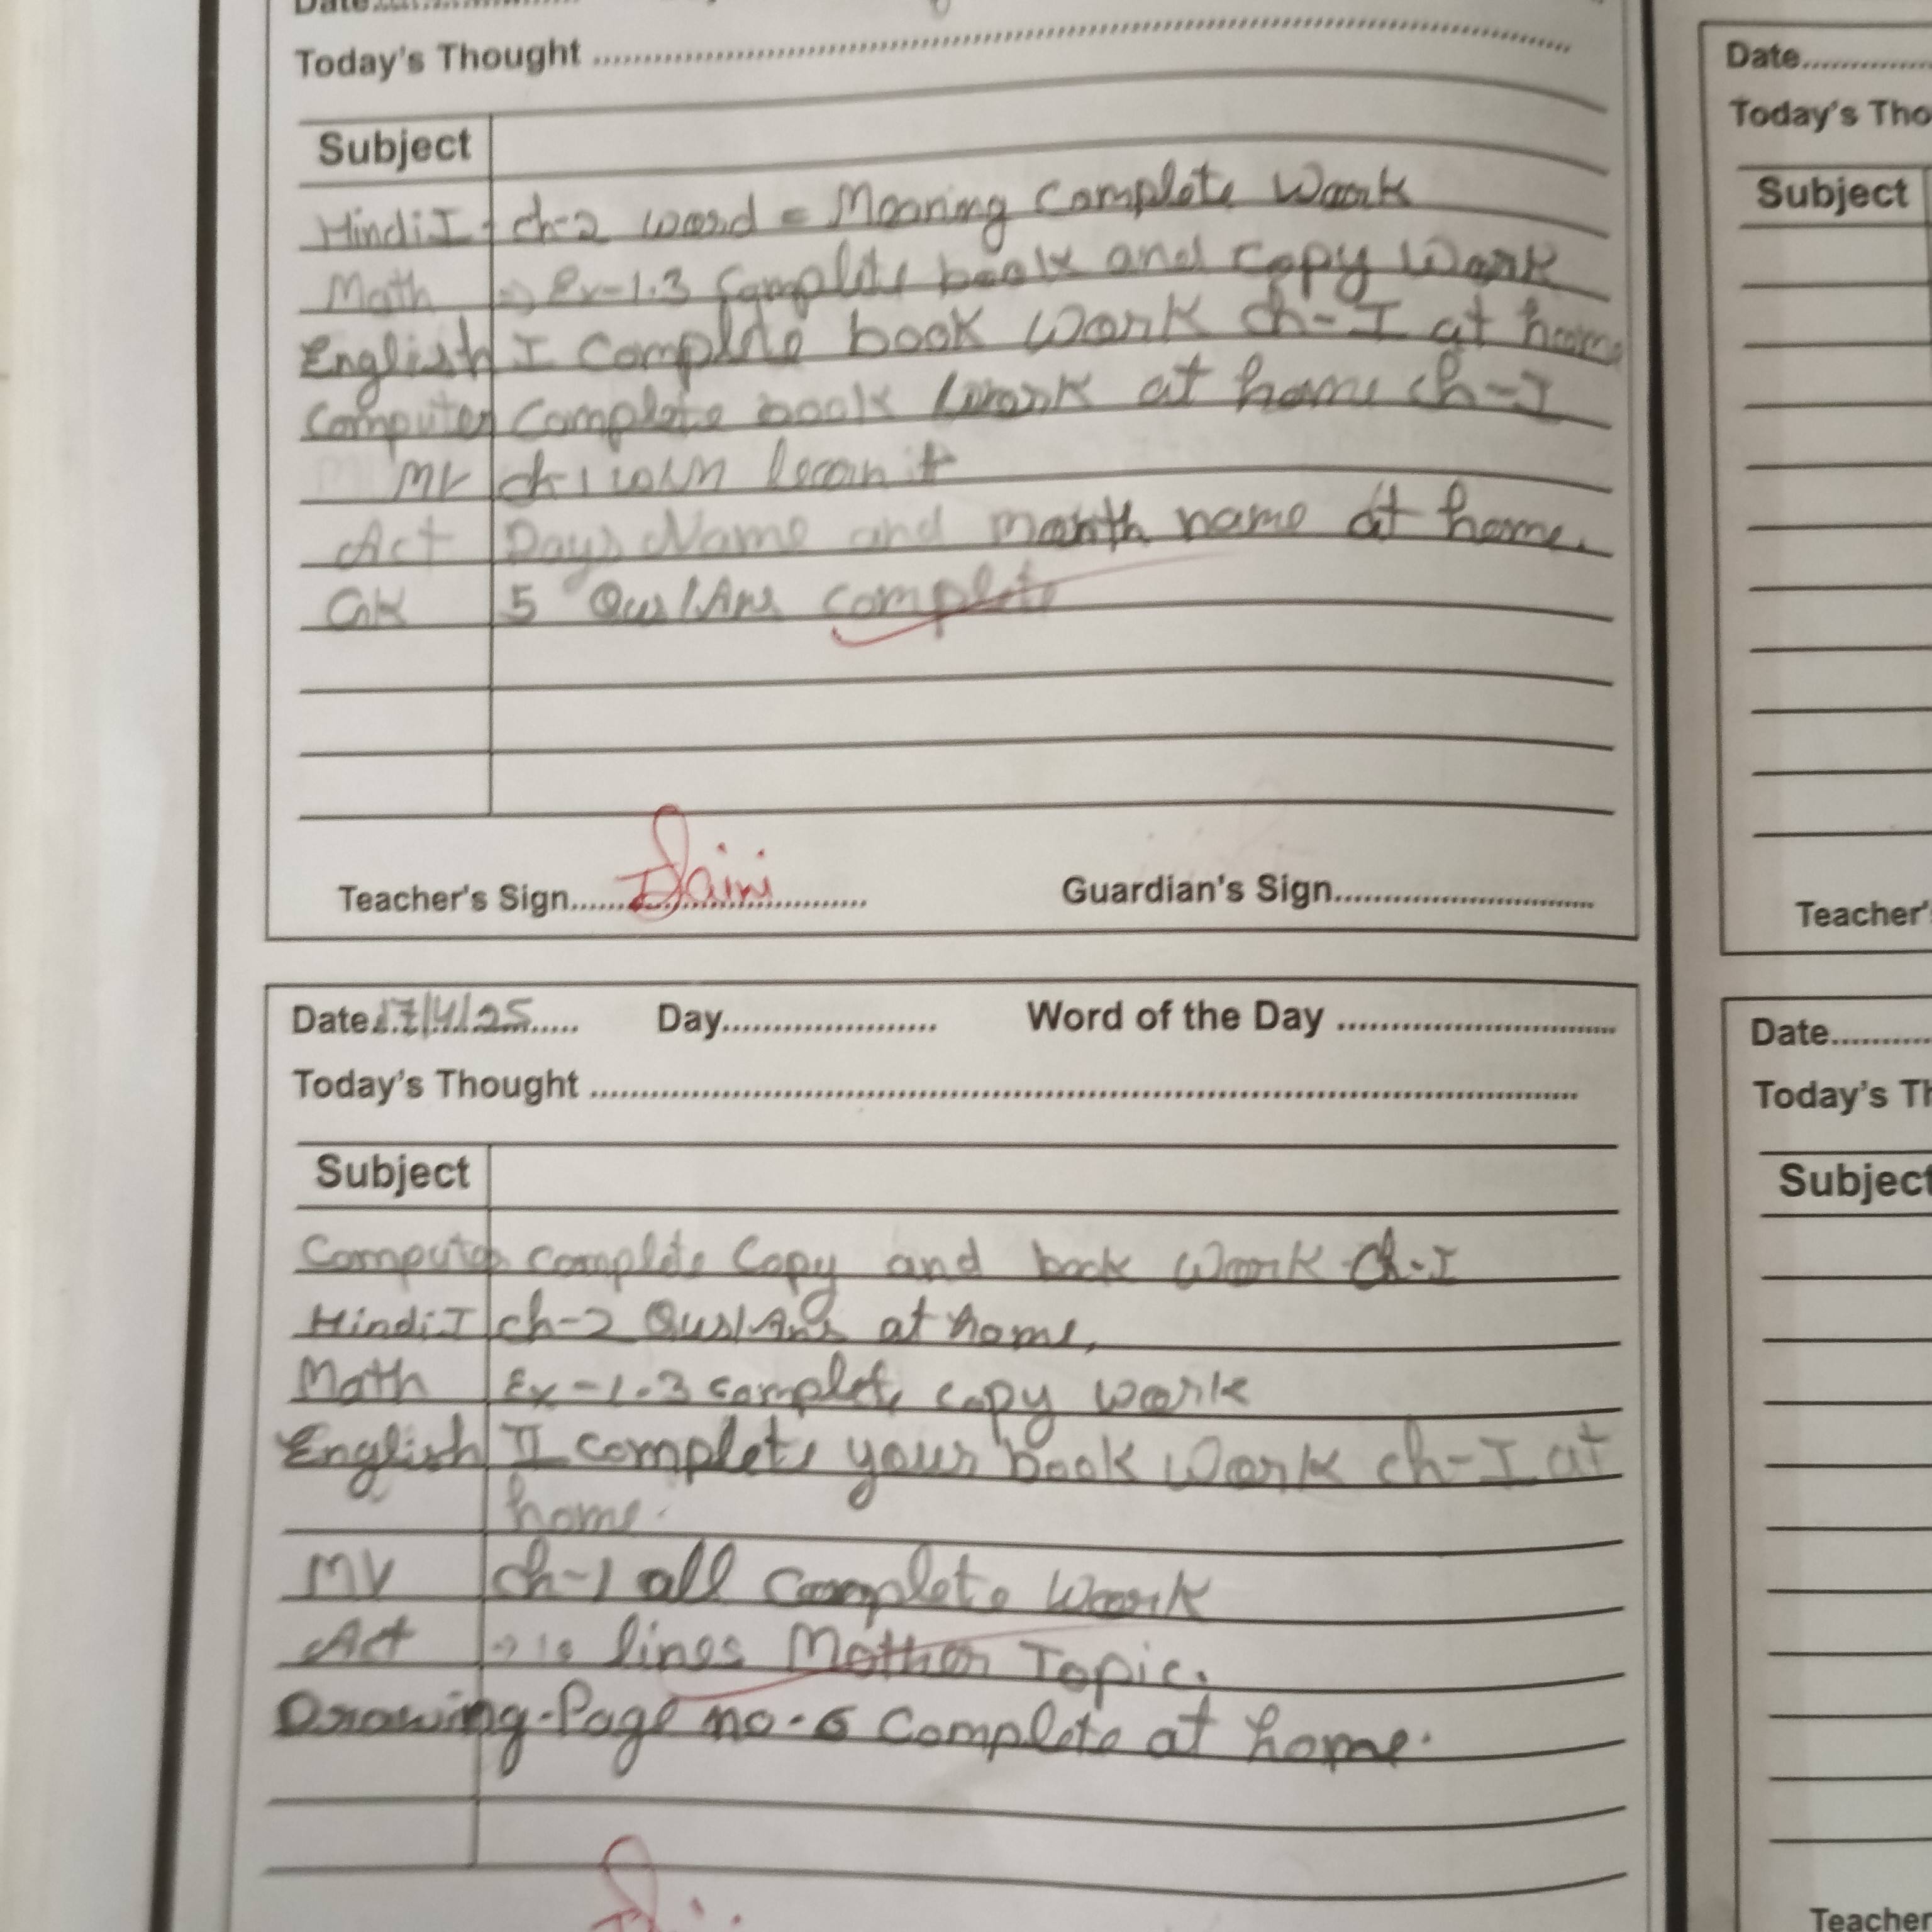 Date
Today's Thought
Subject
Hindi I ch-2 word = Meaning Complete Work
Math → Ex-1.3 Complete book and copy work
English I Complete book work ch-I at home
Computer Complete book work at home ch-I
MV ch 1 learn it
Act Days Name and month name at home.
GK 5 Qus/Ans complete
Teacher's Sign Saini Guardian's Sign
Date 17/4/25 Day Word of the Day
Today's Thought
Subject
Computer Complete Copy and book work ch-I
Hindi I ch-2 Qus/Ans at home.
Math Ex-1.3 complete copy work
English II complete your book work ch-I at
home.
MV ch-1 all Complete work
Act → 10 lines Mother Topic.
Drawing-Page no-6 Complete at home.
Date
Today's Tho
Subject
Teacher's
Date
Today's Th
Subject
Teacher